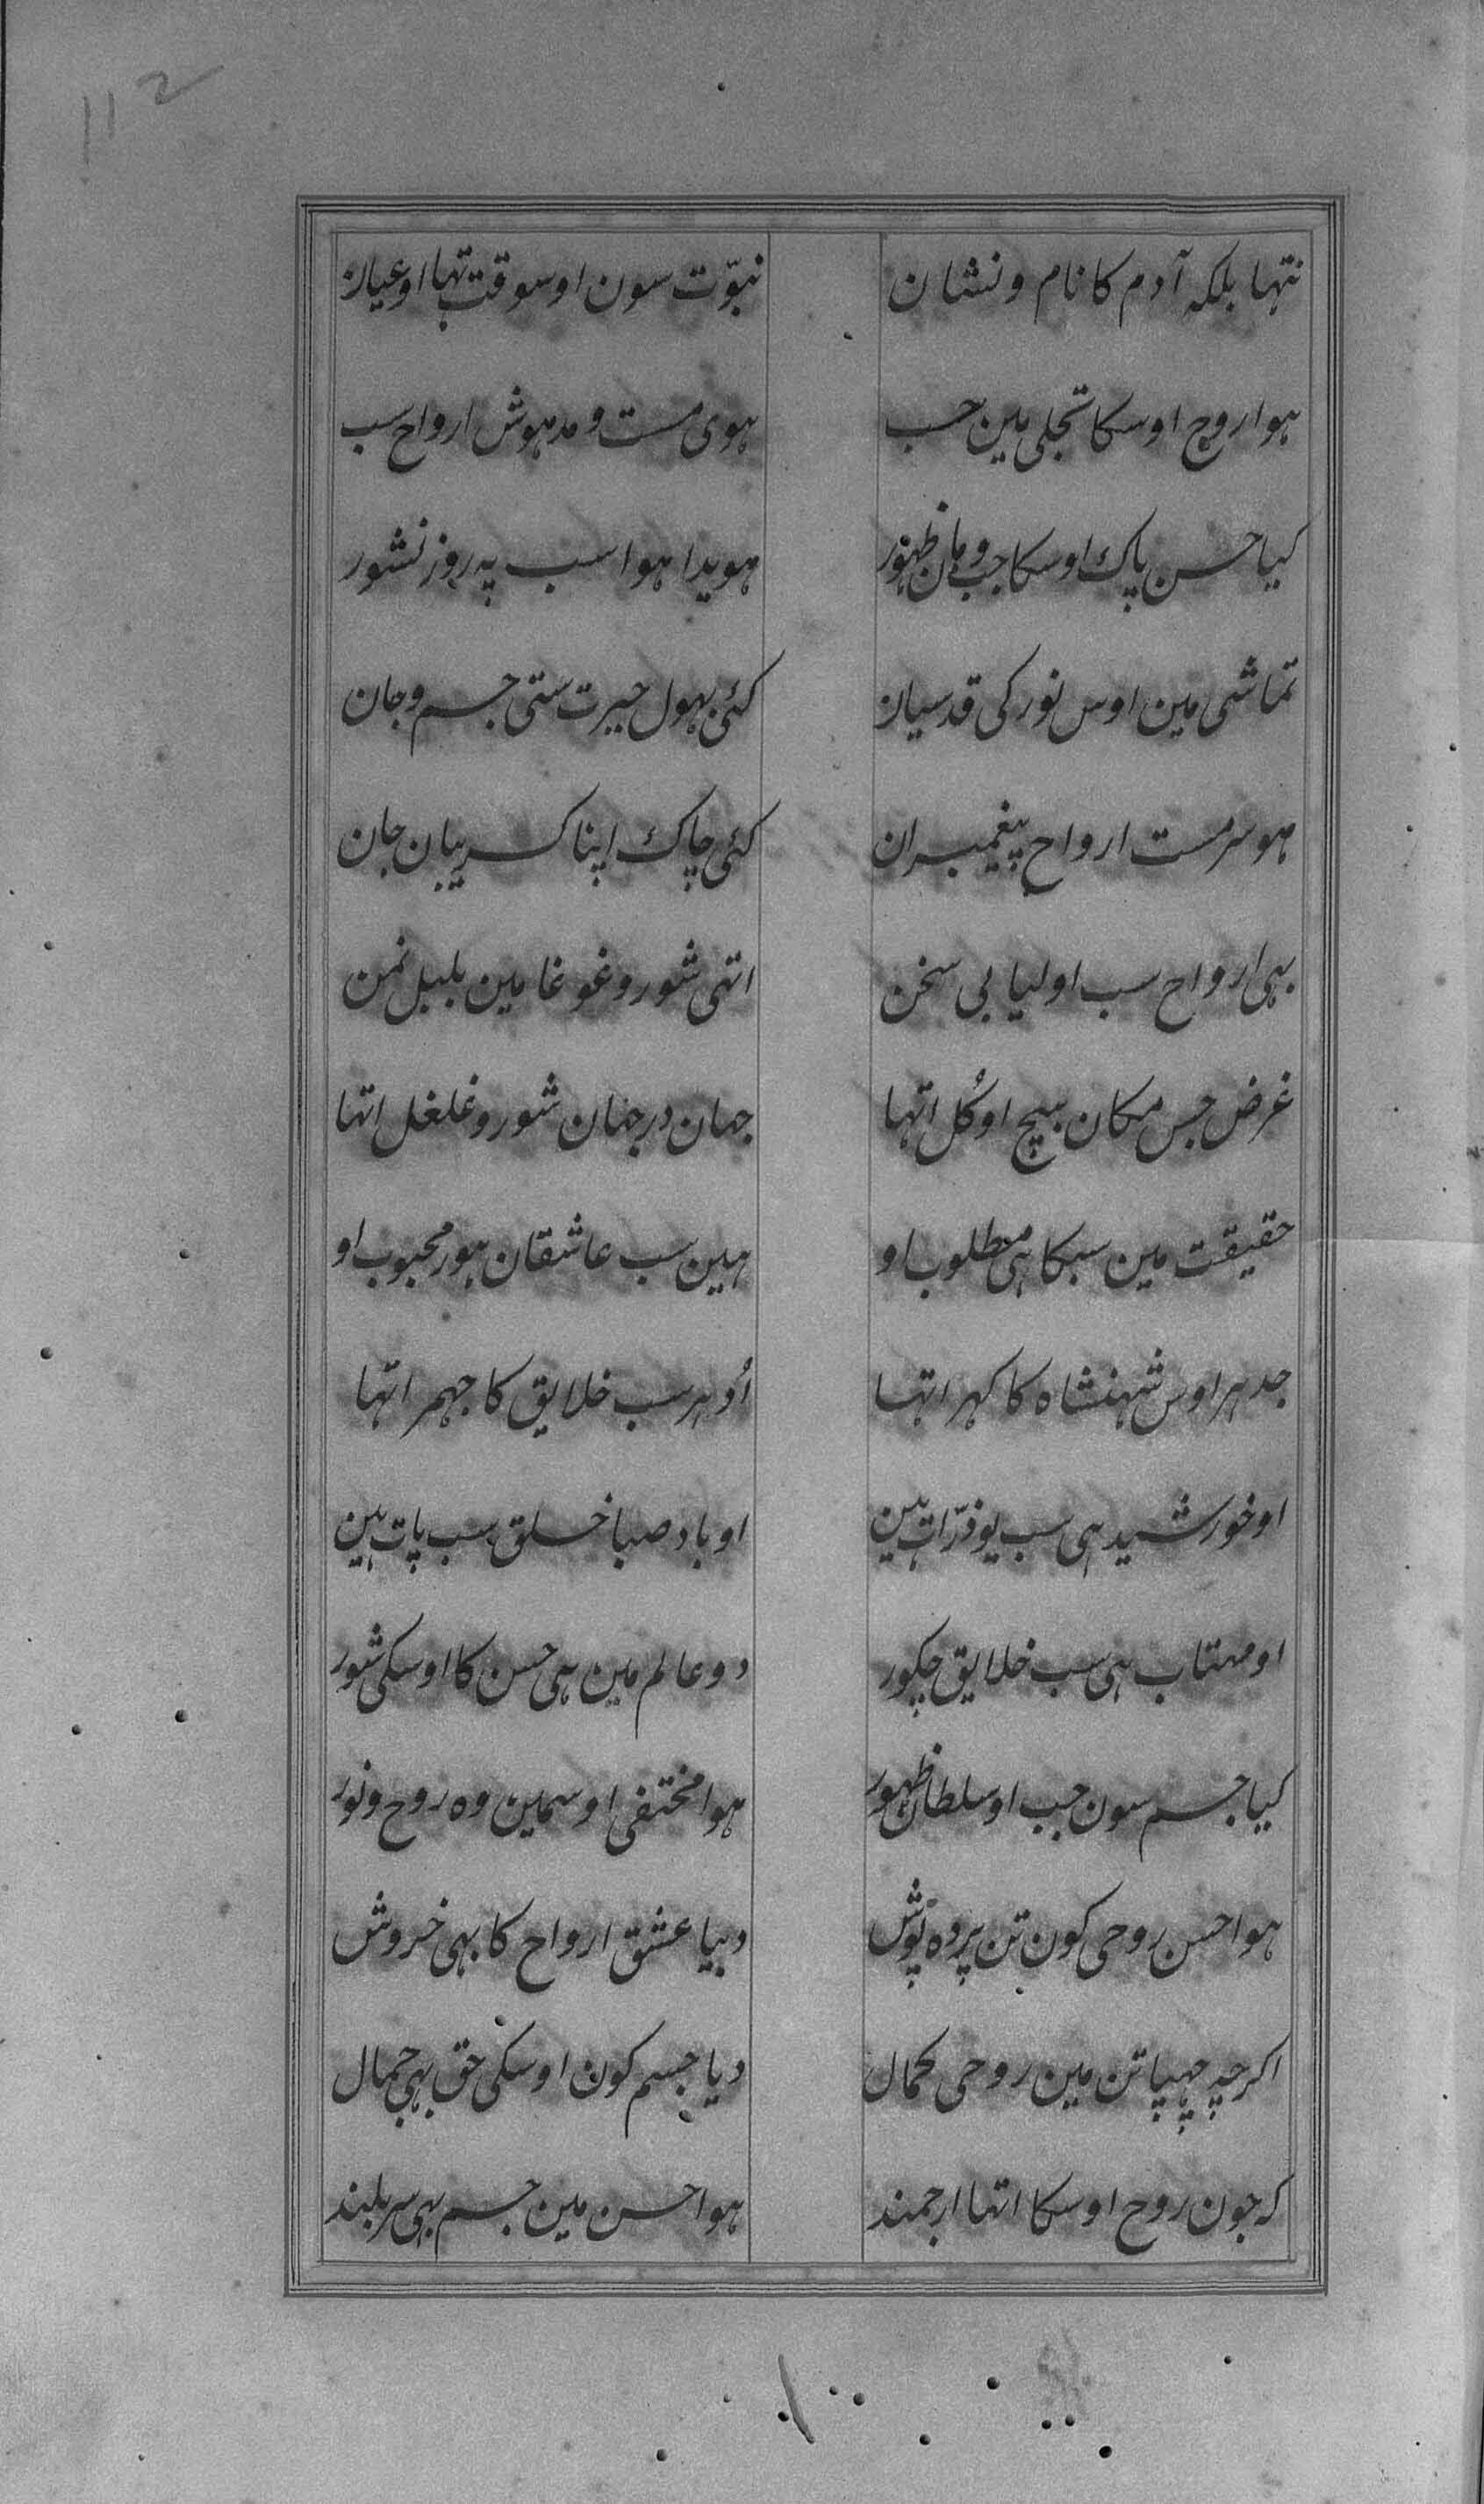 112
نتہا بلکہ آدم کا نام و نشان نبوّت سون اوسوقت تہا او عیان
ہوا روح اوسکا تجلی مین جب ہوی مست و مدہوش ارواح سب
کیا حسن پاک اوسکا جب وہان ظہور ہویدا ہوا سب پہ روز نشور
تماشی مین اوس نور کی قدسیان کئی بہول حیرت ستی جسم و جان
ہو سرمست ارواح پیغمبران کئی چاک اپنا کریبان جان
بہی ارواح سب اولیا بی سخن اتہی شور و غوغا مین بلبل نمن
غرض جس مکان بیچ او کُل اتہا جہان در جہان شور و غلغل اتہا
حقیقت مین سبکا ہی مطلوب او ہین سب عاشقان ہور محبوب او
جدہر اوس شہنشاہ کا کہر اتہا اُدہر سب خلایق کا جہمر اتہا
او خورشید ہی سب یو ذرّات ہین او باد صبا خلق سب پات ہین
او مہتاب ہی سب خلایق چکور دو عالم مین ہی حسن کا اوسکی شور
کیا جسم سون جب او سلطان ظہور ہوا مختفی اوسمین وہ روح و نور
ہوا حسن روحی کون تن پردہ پوش دبیا عشق ارواح کا بہی خروش
اکرچہ چہپیا تن مین روحی کمال دیا جسم کون اوسکی حق بہی جمال
کہ جون روح اوسکا اتہا ارجمند ہوا حسن مین جسم بہی سر بلند